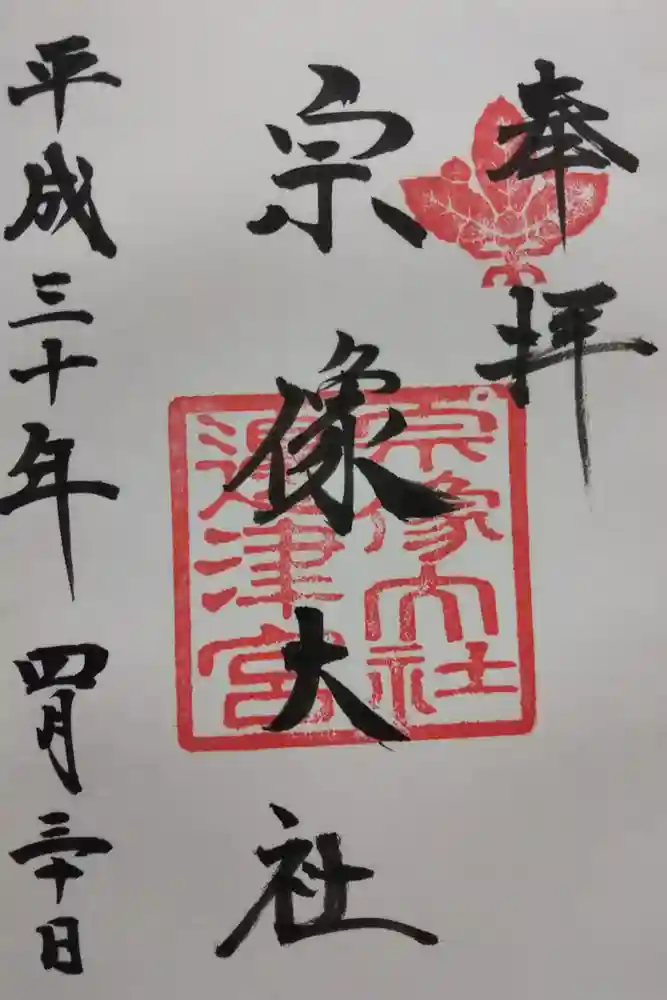 奉拝
宗像大社
宗像大社
邊津宮
平成三十年四月三十日